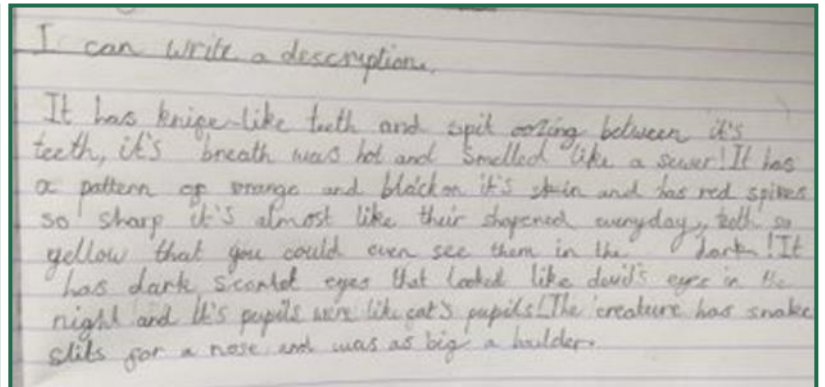 I can write a description.
It has knige-like teeth and spit oozing between it's
teeth, it's breath was hot and smelled like a sewer! It has
a pattern of orange and black on it's skin and has red spikes
so sharp it's almost like their shapened everyday, teeth so
yellow that you could even see them in the dark! It
has dark scarlet eyes that looked like devil's eyes in the
night and it's pupils were like cat's pupils! The creature has snake
slits for a nose and was as big a bulder.